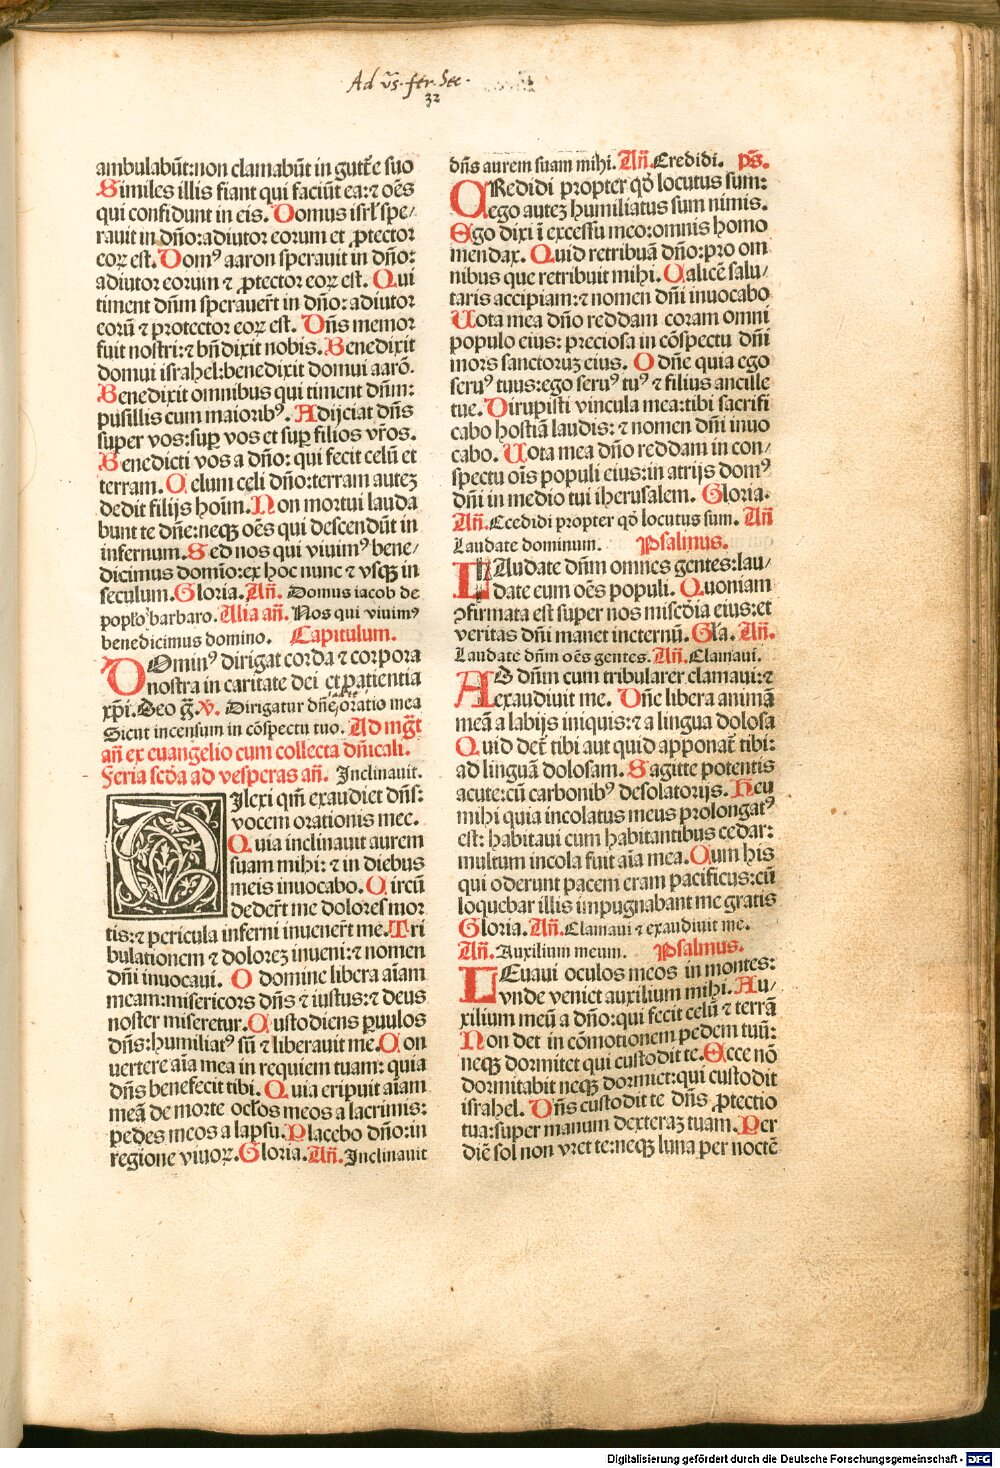 Ad v̄s. fer. Sec.
32
ambulabūt:non clamabūt in gutt̄e suo
Similes illis fiant qui faciūt ea:⁊ oēs
qui confidunt in eis. Domus isrl̄ spe/
rauit in dn̄o:adiutor eorum et ꝓtector
eoꝝ est. Domꝰ aaron sperauit in dn̄o:
adiutor eorum ⁊ ꝓtector eoꝝ est. Qui
timent dn̄m sperauer̄t in dn̄o: adiutor
eorū ⁊ protector eoꝝ est. Dn̄s memor
fuit nostri:⁊ bn̄dixit nobis. Benedixit
domui israhel:benedixit domui aarō.
Benedixit omnibus qui timent dn̄m:
pusillis cum maioribꝰ. Adijciat dn̄s
super vos:suꝑ vos et suꝑ filios vr̄os.
Benedicti vos a dn̄o: qui fecit celū et
terram. Celum celi dn̄o:terram auteꝫ
dedit filijs hoīm. Non mortui lauda
bunt te dn̄e:neqꝫ oēs qui descendūt in
infernum. Sed nos qui viuimꝰ bene/
dicimus domīo:ex hoc nunc ⁊ vsqꝫ in
seculum. Gloria. Añ. Domus iacob de
popl̄o barbaro. Alia añ. Nos qui viuimꝰ
benedicimus domino. Capitulum.
DOminꝰ dirigat corda ⁊ corpora
nostra in caritate dei et patientia
xp̄i. Deo gr̄. V. Dirigatur dn̄e oratio mea
Sicut incensum in cōspectu tuo. Ad mg̅t
añ ex euangelio cum collecta dn̄icali.
Feria scd̄a ad vesperas añ. Inclinauit.
DIlexi qm̄ exaudiet dn̄s:
vocem orationis mee.
Quia inclinauit aurem
suam mihi: ⁊ in diebus
meis inuocabo. Circū
deder̄t me dolores mor
tis:⁊ pericula inferni inuener̄t me. Tri
bulationem ⁊ doloreꝫ inueni:⁊ nomen
dn̄i inuocaui. O domine libera aīam
meam:misericors dn̄s ⁊ iustus:⁊ deus
noster miseretur. Custodiens ꝑuulos
dn̄s:humiliatꝰ sū ⁊ liberauit me. Con
uertere aīa mea in requiem tuam: quia
dn̄s benefecit tibi. Quia eripuit aīam
meā de morte ocl̄os meos a lacrimis:
pedes meos a lapsu. Placebo dn̄o:in
regione viuoꝝ. Gloria. Añ. Inclinauit
dn̄s aurem suam mihi. Añ. Credidi. ps̄.
CRedidi propter qd̄ locutus sum:
ego auteꝫ humiliatus sum nimis.
Ego dixi ī excessu meo:omnis homo
mendax. Quid retribuā dn̄o:pro om
nibus que retribuit mihi. Calicē salu/
taris accipiam:⁊ nomen dn̄i inuocabo
Uota mea dn̄o reddam coram omni
populo eius: preciosa in cōspectu dn̄i
mors sanctoruꝫ eius. O dn̄e quia ego
seruꝰ tuus:ego seruꝰ tuꝰ ⁊ filius ancille
tue. Dirupisti vincula mea:tibi sacrifi
cabo hostiā laudis: ⁊ nomen dn̄i inuo
cabo. Uota mea dn̄o reddam in con/
spectu oīs populi eius:in atrijs domꝰ
dn̄i in medio tui iherusalem. Gloria.
Añ. Ccedidi propter qd̄ locutus sum. Añ
Laudate dominum. Psalmus.
LAudate dn̄m omnes gentes:lau/
date eum oēs populi. Quoniam
ꝯfirmata est super nos miscd̄ia eius:et
veritas dn̄i manet ineternū. Gl̄a. Añ.
Laudate dn̄m oēs gentes. Añ. Clamaui.
AD dn̄m cum tribularer clamaui:⁊
exaudiuit me. Dn̄e libera animā
meā a labijs iniquis:⁊ a lingua dolosa
Quid det̄ tibi aut quid apponat̄ tibi:
ad linguā dolosam. Sagitte potentis
acute:cū carbonibꝰ desolatorijs. Heu
mihi quia incolatus meus prolongatꝰ
est: habitaui cum habitantibus cedar:
multum incola fuit aīa mea. Cum his
qui oderunt pacem eram pacificus:cū
loquebar illis impugnabant me gratis
Gloria. Añ. Clamaui ⁊ exaudiuit me.
Añ. Auxilium meum. Psalmus.
LEuaui oculos meos in montes:
vnde veniet auxilium mihi. Au/
xilium meū a dn̄o:qui fecit celū ⁊ terrā
Non det in cōmotionem pedem tuū:
neqꝫ dormitet qui custodit te. Ecce nō
dormitabit neqꝫ dormiet:qui custodit
israhel. Dn̄s custodit te dn̄s ꝓtectio
tua:super manum dexteraꝫ tuam. Per
diē sol non vret te:neqꝫ luna per noctē
Digitalisierung gefördert durch die Deutsche Forschungsgemeinschaft - DFG